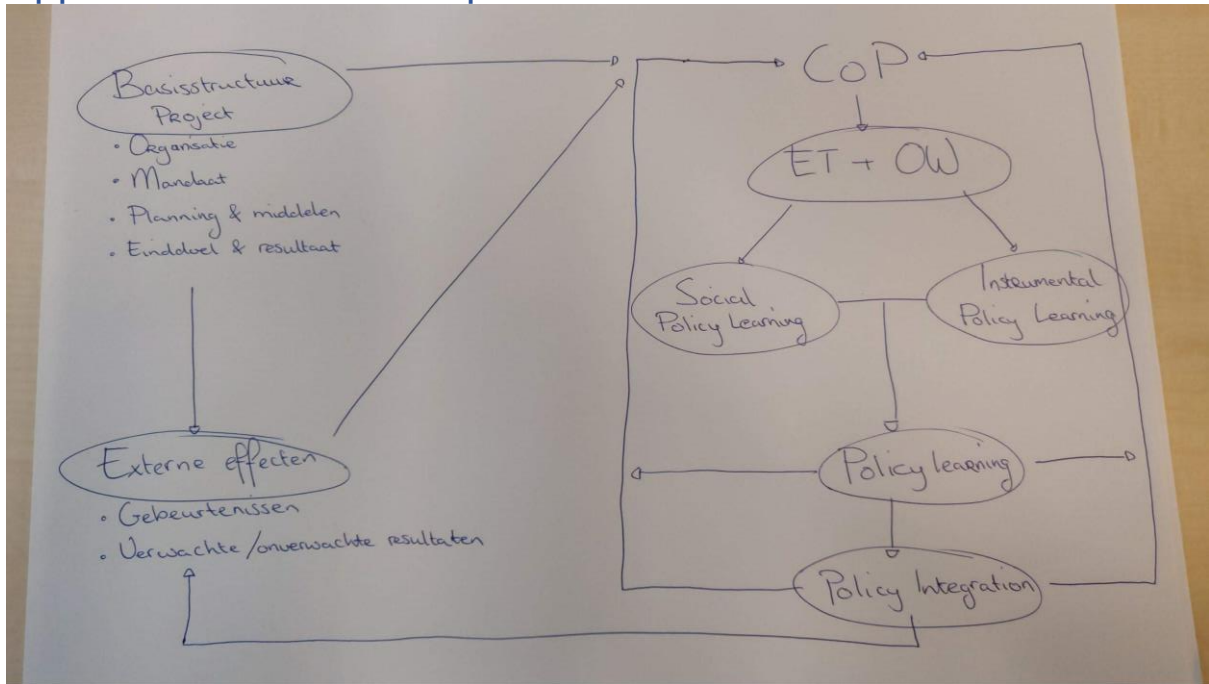 Basisstructuur
Project
• Organisatie
• Mandaat
• Planning & middelen
• Einddoel & resultaat
Externe effecten
• Gebeurtenissen
• Verwachte/onverwachte resultaten
CoP
ET + OW
Social
Policy Learning
Instrumental
Policy Learning
Policy learning
Policy Integration